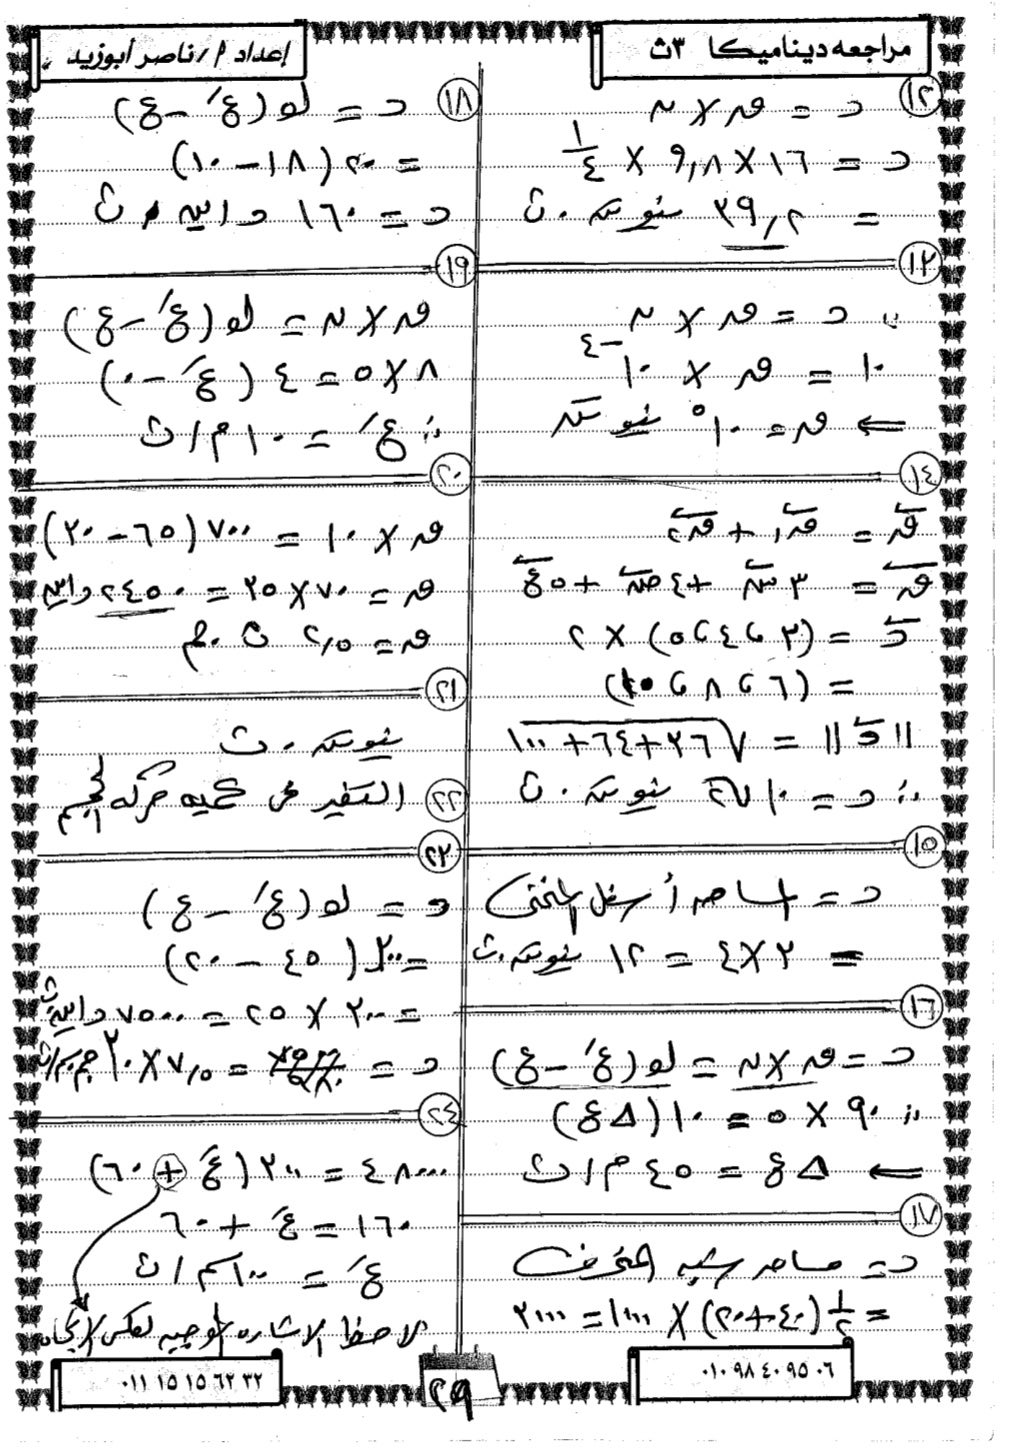 مراجعه ديناميكا ٣ث
إعداد م/ ناصر أبوزيد
١٢
د = ق × ن
د = ١٦ × ٩,٨ × ١/٤
= ٣٩,٢ نيوتن . ث
١٣
∵ د = ق × ن
١٠ = ق × ١٠^-٤
⇐ ق = ١٠^٥ نيوتن
١٤
ق = ق١ + ق٢
ق = ٣ س + ٤ ص + ٥ ع
د = (٣ ، ٤ ، ٥) × ٢
= (٦ ، ٨ ، ١٠)
||د|| = √٣٦+٦٤+١٠٠
∴ د = ١٠√٢ نيوتن . ث
١٥
د = المساحه أسفل المنحنى
= ٣ × ٤ = ١٢ نيوتن . ث
١٦
د = ق × ن = ك (عَ – ع)
∴ ٩٠ × ٥ = ١٠ (Δ ع)
⇐ Δ ع = ٤٥ م/ث
١٧
د = مساحه شبه المنحرف
= ١/٢ (٤٠+٢٠) × ١٠٠٠ = ٣٠٠٠٠
١٨
د = ك (عَ – ع)
= ٢٠ (١٨ – ١٠)
د = ١٦٠ داين . ث
١٩
ق × ن = ك (عَ – ع)
٨ × ٥ = ٤ (عَ – ٠)
∴ عَ = ١٠ م/ث
٢٠
ق × ١٠ = ٧٠٠ (٦٥ – ٣٠)
ق = ٧٠ × ٣٥ = ٢٤٥٠ داين
ق = ٢,٥ ث . جم
٢١
نيوتن . ث
٢٢
التغير فى كميه حركه الجسم
٢٣
د = ك (عَ – ع)
= ٣٠٠ (٤٥ – ٢٠)
= ٣٠٠ × ٢٥ = ٧٥٠٠ داين.ث
د = ٧,٥ × ١٠^٣ جم.سم/ث
٢٤
٤٨٠٠٠ = ٣٠٠ (عَ + ٦٠)
١٦٠ = عَ + ٦٠
عَ = ١٠٠ سم/ث
لاحظ الاشاره الموجبه لعكس الاتجاه
٠١٠ ٩٨ ٤٠ ٩٥ ٠٦
٢٩
٠١١ ١٥ ١٥ ٦٢ ٣٢